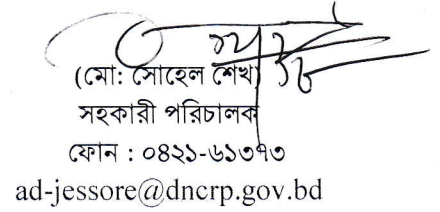 (মো: সোহেল শেখ)
সহকারী পরিচালক
ফোন : ০৪২১-৬১৩৭৩
ad-jessore@dncrp.gov.bd